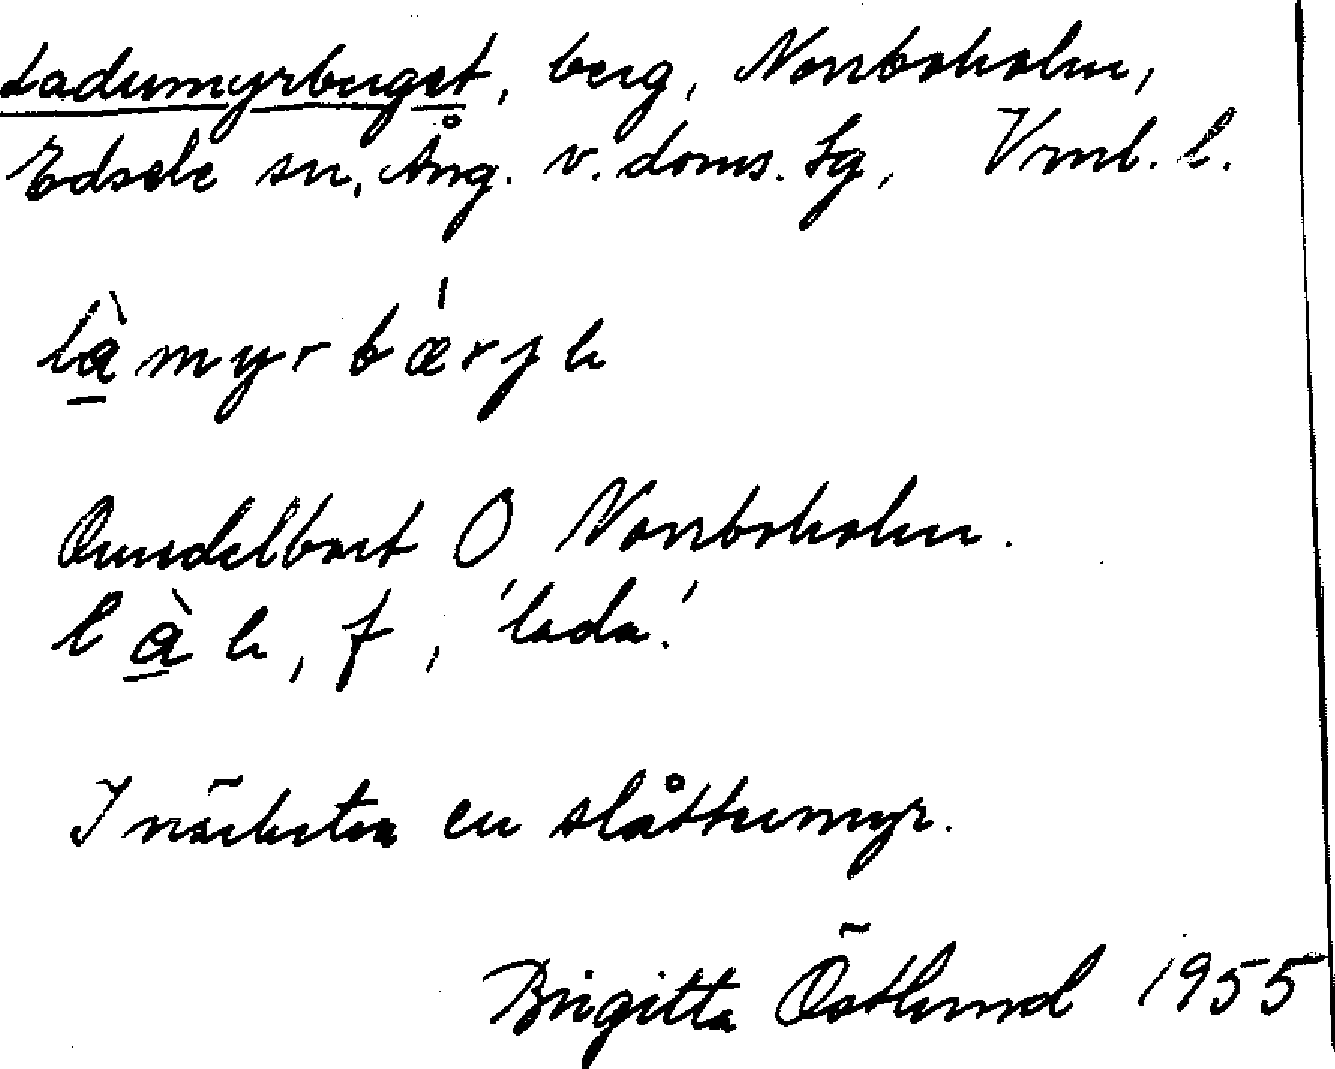 Ladumyrberget, berg, Norrboholm,
Edsele sn, Ång. v. doms. Lg, Vrml. l.
là̱myrbǽrje
Qundelbart O Norrboholm.
là̱e, f, 'lada'.
I närheten en slåttermyr.
Birgitta Östlund 1955